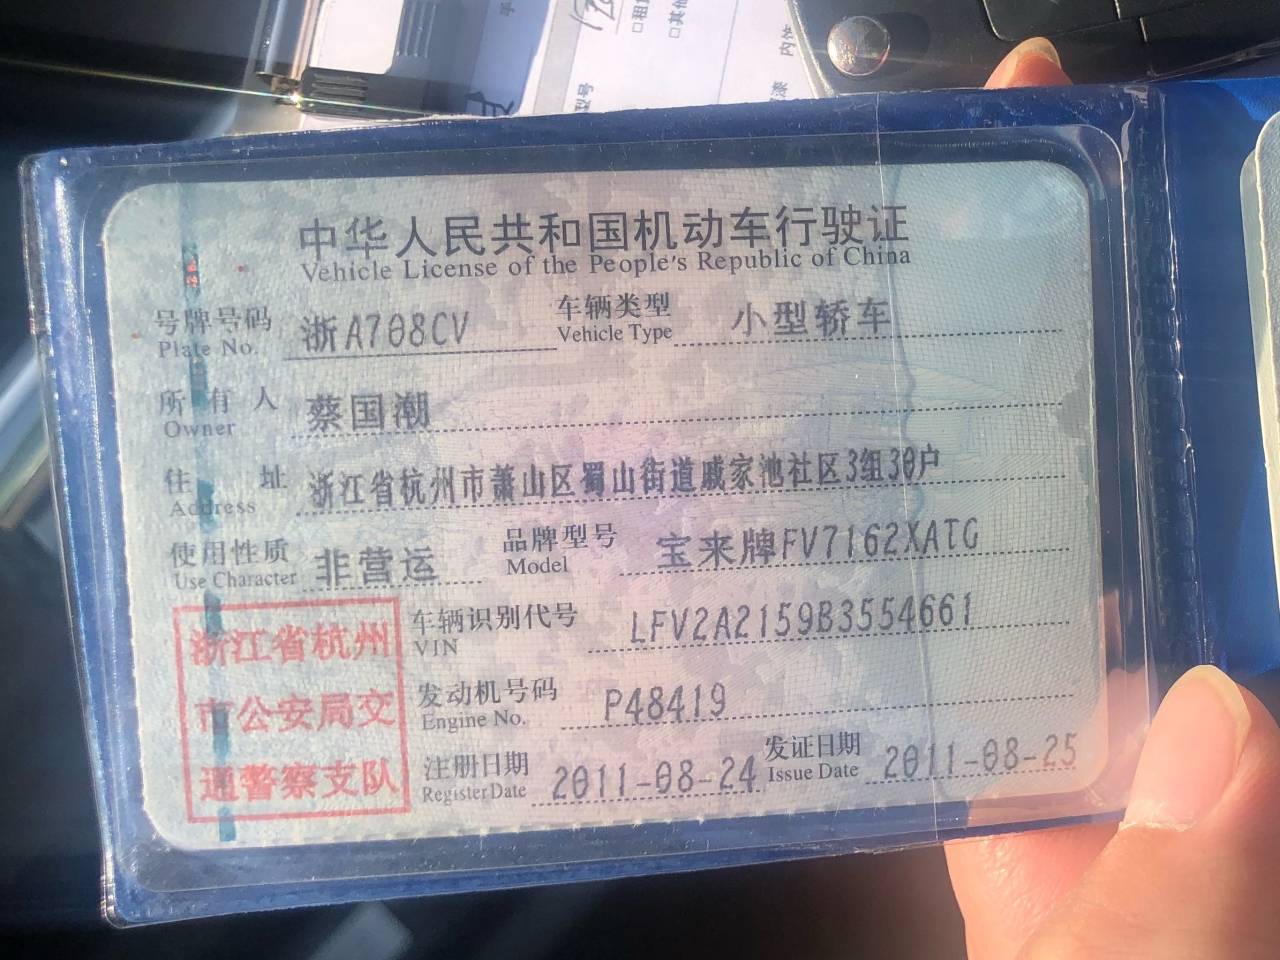 型号
中华人民共和国机动车行驶证
Vehicle License of the People's Republic of China
号牌号码 浙A708CV 车辆类型 小型轿车
Plate No. Vehicle Type
所有人 蔡国潮
Owner
住址 浙江省杭州市萧山区蜀山街道戚家池社区3组30户
Address
使用性质 非营运 品牌型号 宝来牌FV7162XATG
Use Character Model
浙江省杭州
市公安局交
通警察支队
车辆识别代号 LFV2A2159B3554661
VIN
发动机号码 P48419
Engine No.
注册日期 2011-08-24 发证日期 2011-08-25
Register Date Issue Date